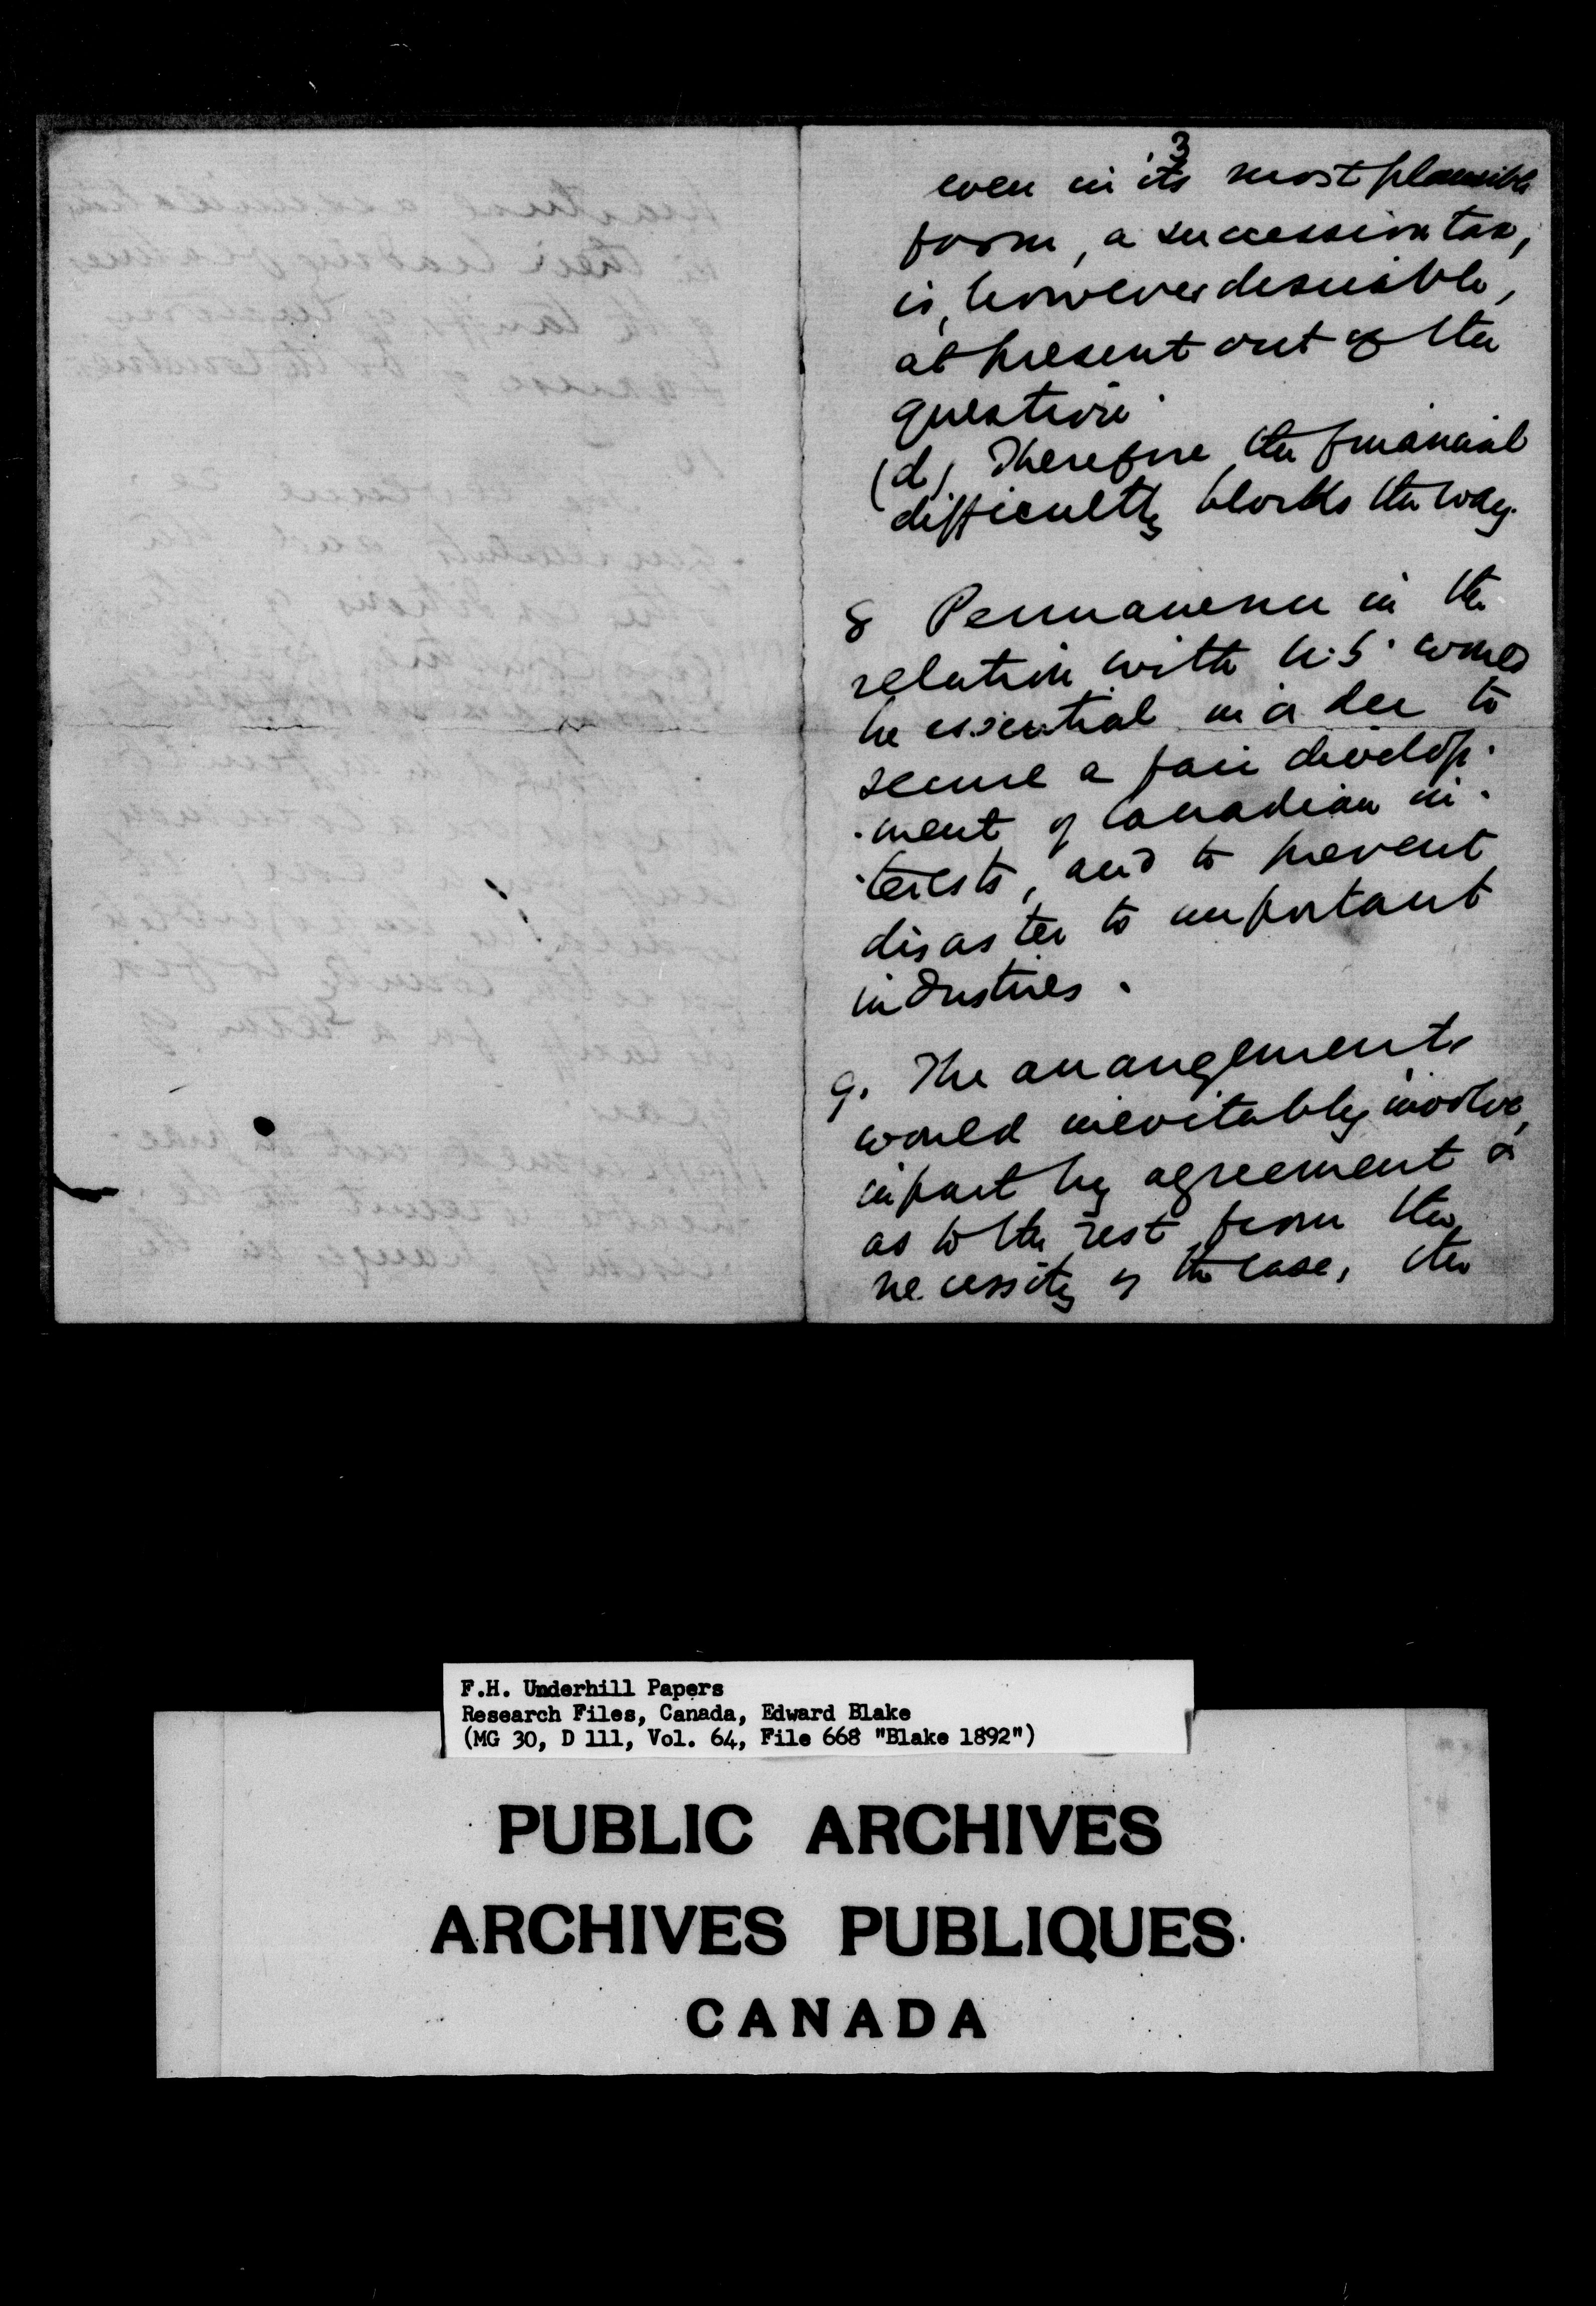 3
even in its most plausible
form, a succession tax,
is, however desirable,
at present out of the
question.
(d) Therefore the financial
difficulty blocks the way.
8 Permanence in the
relation with U.S. would
be essential in order to
secure a fair develop-
-ment of Canadian in-
-terests, and to prevent
disaster to important
industries.
9. The arrangements
would inevitably involve,
in part by agreement &
as to the rest from the
necessity of the case, the
F.H. Underhill Papers
Research Files, Canada, Edward Blake
(MG 30, D 111, Vol. 64, File 668 "Blake 1892")
PUBLIC ARCHIVES
ARCHIVES PUBLIQUES
CANADA